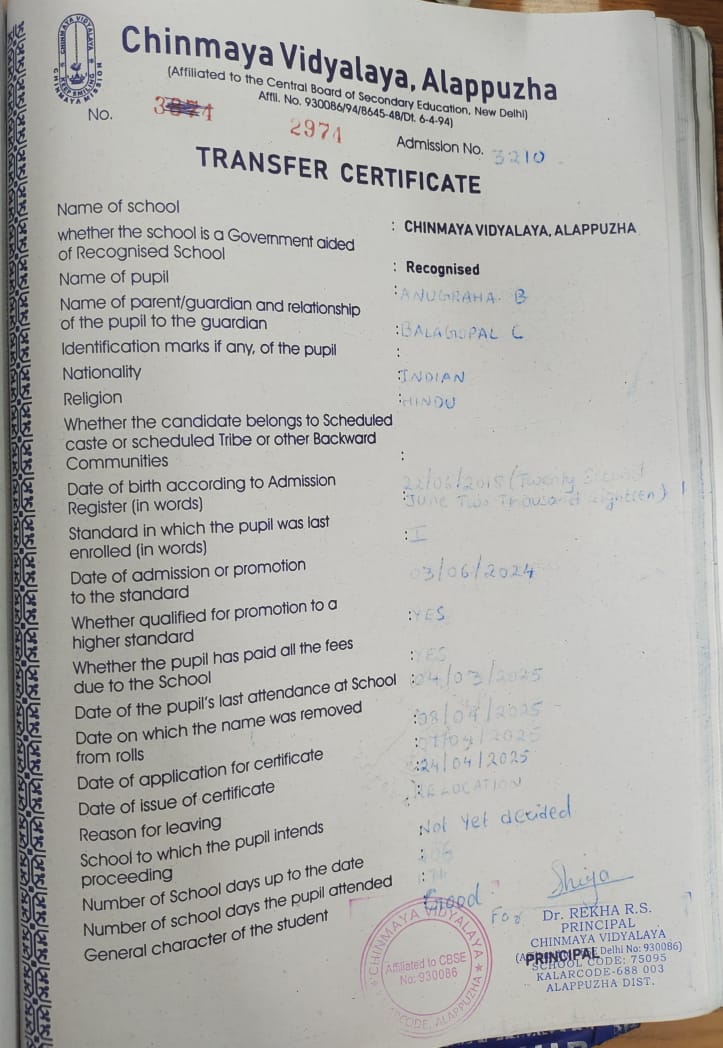 CHINMAYA VIDYALAYA
KEEP SMILING
CHINMAYA MISSION
Chinmaya Vidyalaya, Alappuzha
(Affiliated to the Central Board of Secondary Education, New Delhi)
Affli. No. 930086/94/8645-48/Dt. 6-4-94)
No. 2971 Admission No. 3210
TRANSFER CERTIFICATE
Name of school : CHINMAYA VIDYALAYA, ALAPPUZHA
whether the school is a Government aided
of Recognised School : Recognised
Name of pupil : ANUGRAHA. B
Name of parent/guardian and relationship
of the pupil to the guardian : BALAGOPAL C
Identification marks if any, of the pupil :
Nationality : INDIAN
Religion : HINDU
Whether the candidate belongs to Scheduled
caste or scheduled Tribe or other Backward
Communities :
Date of birth according to Admission 22/06/2018 (Twenty Second
Register (in words) : June Two Thousand Eighteen)
Standard in which the pupil was last
enrolled (in words) : I
Date of admission or promotion
to the standard 03/06/2024
Whether qualified for promotion to a
higher standard : YES
Whether the pupil has paid all the fees
due to the School : YES
Date of the pupil's last attendance at School : 04/03/2025
Date on which the name was removed
from rolls : 08/04/2025
Date of application for certificate : 07/04/2025
Date of issue of certificate : 24/04/2025
Reason for leaving : RELOCATION
School to which the pupil intends
proceeding Not yet decided
Number of School days up to the date :
Number of school days the pupil attended :
General character of the student Good
For Shiya
Dr. REKHA R.S.
PRINCIPAL
CHINMAYA VIDYALAYA
Delhi No: 930086)
PRINCIPAL
SCHOOL CODE: 75095
KALARCODE-688 003
ALAPPUZHA DIST.
CHINMAYA VIDYALAYA
Affiliated to CBSE
No: 930086
ALAPPUZHA